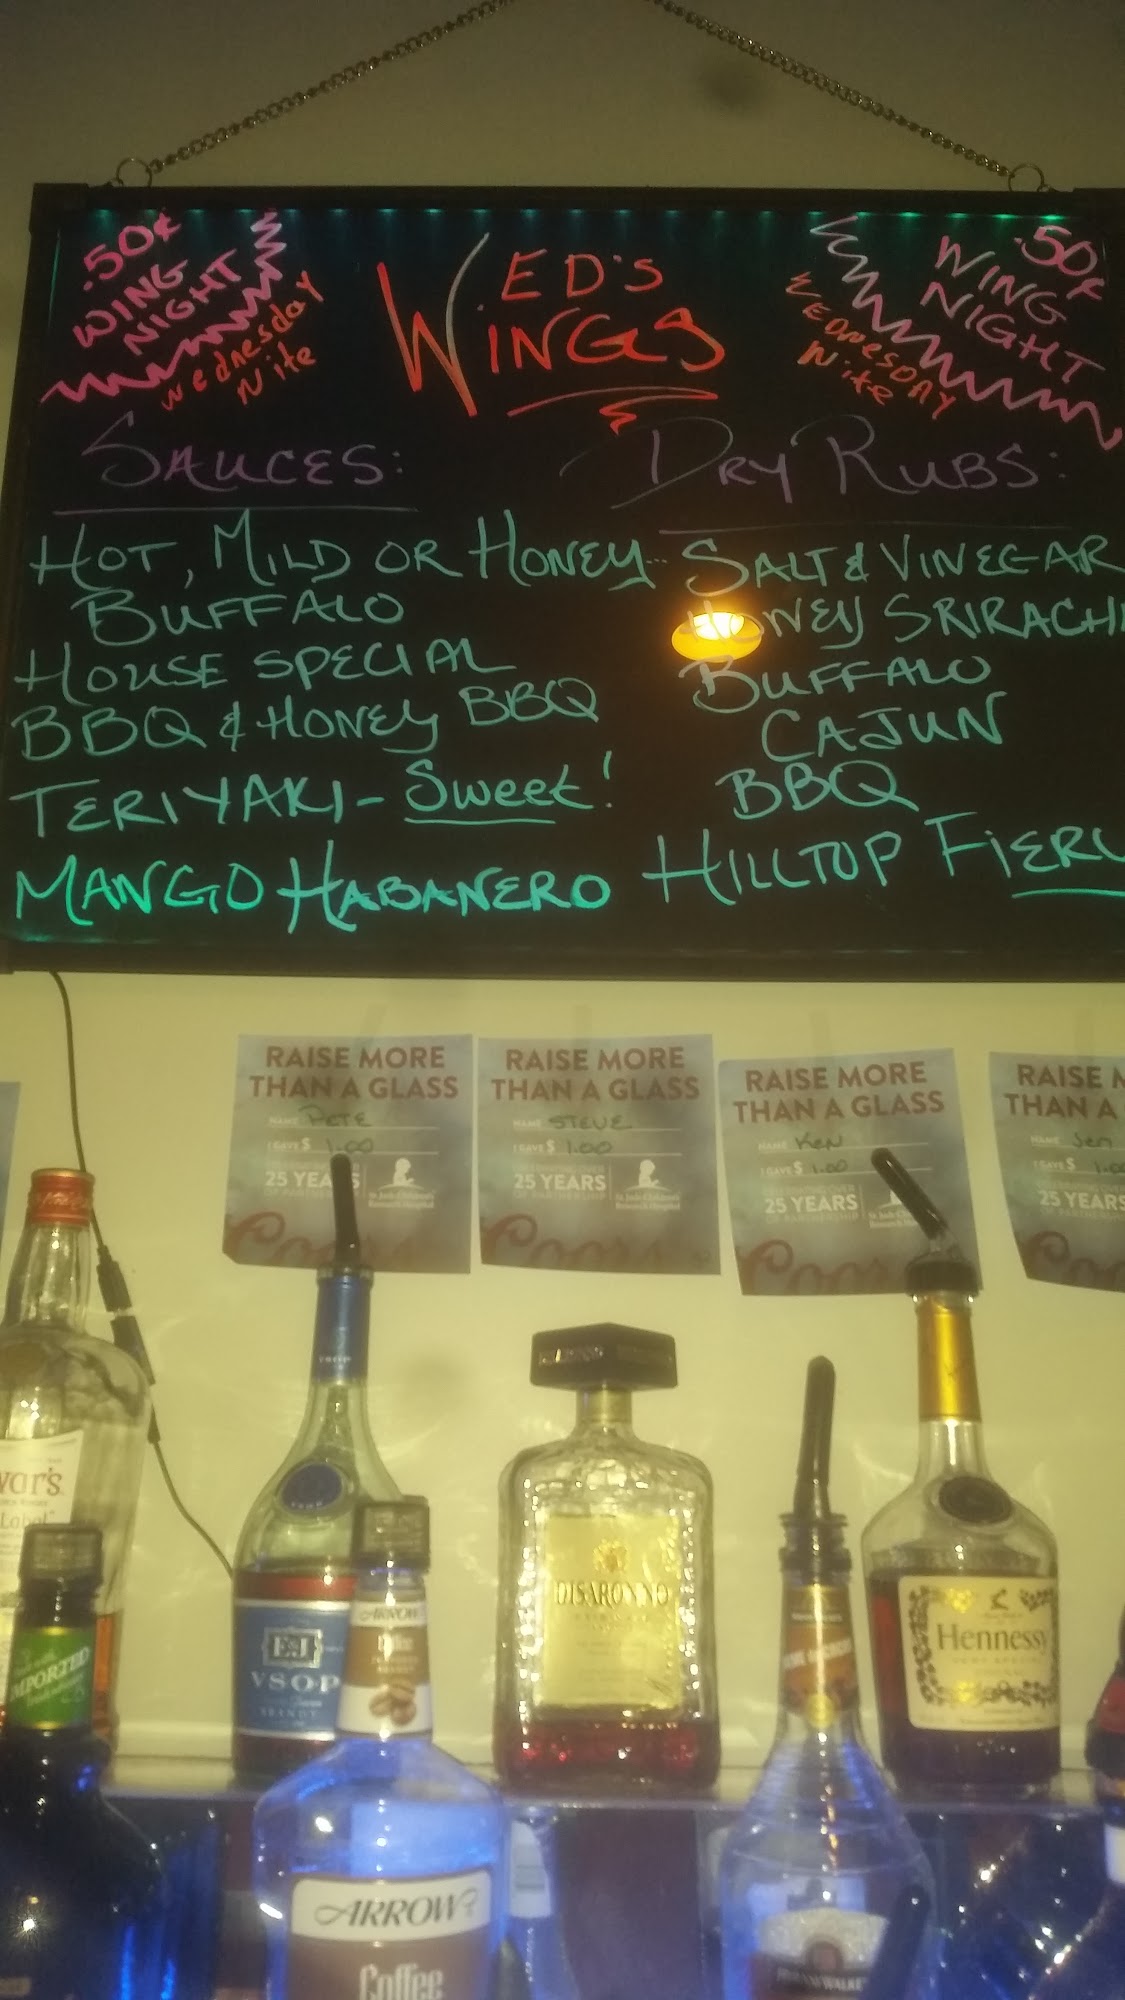 .50¢
WING
NIGHT
Wednesday
Nite
WED'S
WINGS
.50¢
WING
NIGHT
WEDNESDAY
Nite
SAUCES:
HOT, MILD OR HONEY
BUFFALO
HOUSE SPECIAL
BBQ & HONEY BBQ
TERIYAKI - Sweet!
MANGO HABANERO
DRY RUBS:
SALT & VINEGAR
HONEY SRIRACH
BUFFALO
CAJUN
BBQ
HILLTOP FIERY
RAISE MORE
THAN A GLASS
NAME PETE
I GAVE $ 1.00
25 YEARS
OF PARTNERSHIP
St. Jude Children's
Research Hospital
Coors
RAISE MORE
THAN A GLASS
NAME STEVE
I GAVE $ 1.00
25 YEARS
OF PARTNERSHIP
St. Jude Children's
Research Hospital
Coors
RAISE MORE
THAN A GLASS
NAME KEN
I GAVE $ 1.00
25 YEARS
OF PARTNERSHIP
Coors
RAISE M
THAN A
NAME Jen
I GAVE $ 1.0
25 YEARS
war's
Label
IMPORTED
VSOP
E&J
VSOP
BRANDY
ARROW
Coffee
ARROW
Coffee
DISARONNO
Hennessy
VERY SPECIAL
COGNAC
HIRAM WALKER